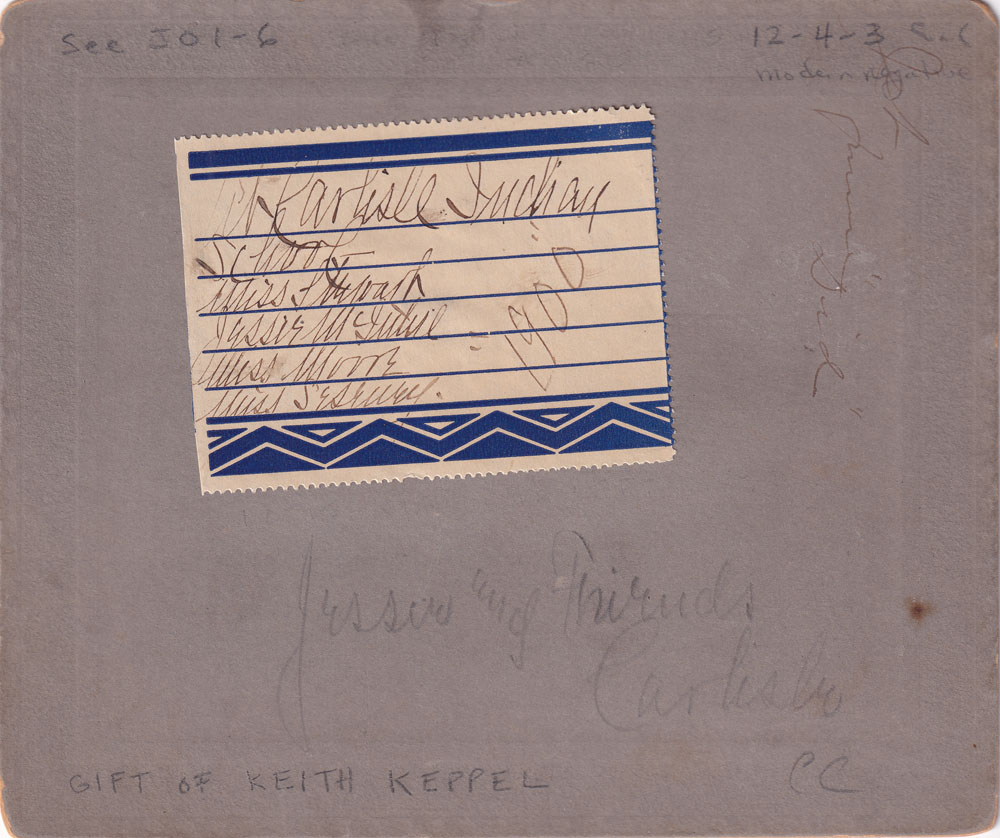 See JO1-6
12-4-3
modern negative
At Carlisle Indian
School
Miss
Jessie
Miss Moore
Miss
1900
Jessie and Friends
Carlisle
GIFT OF KEITH KEPPEL
CC